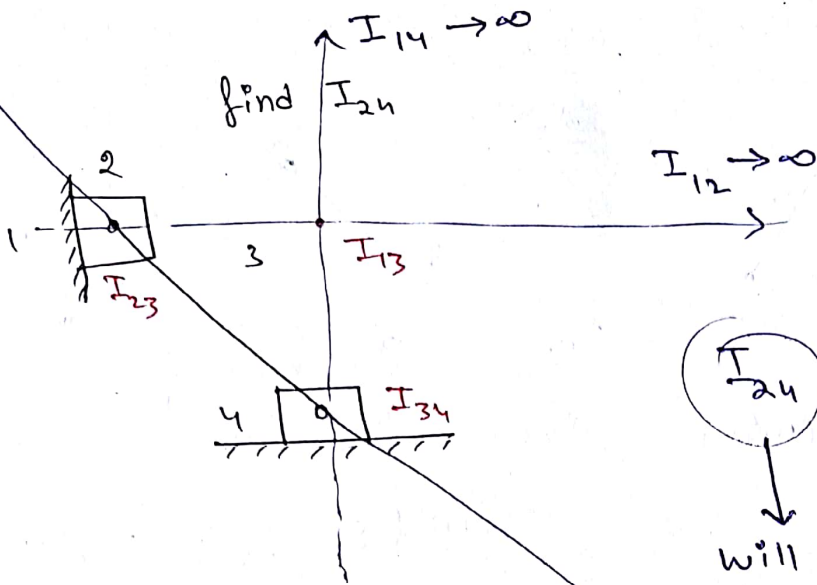 I₁₄ → ∞
find I₂₄
2
I₁₂ → ∞
1
3
I₁₃
I₂₃
I₂₄
4
I₃₄
will